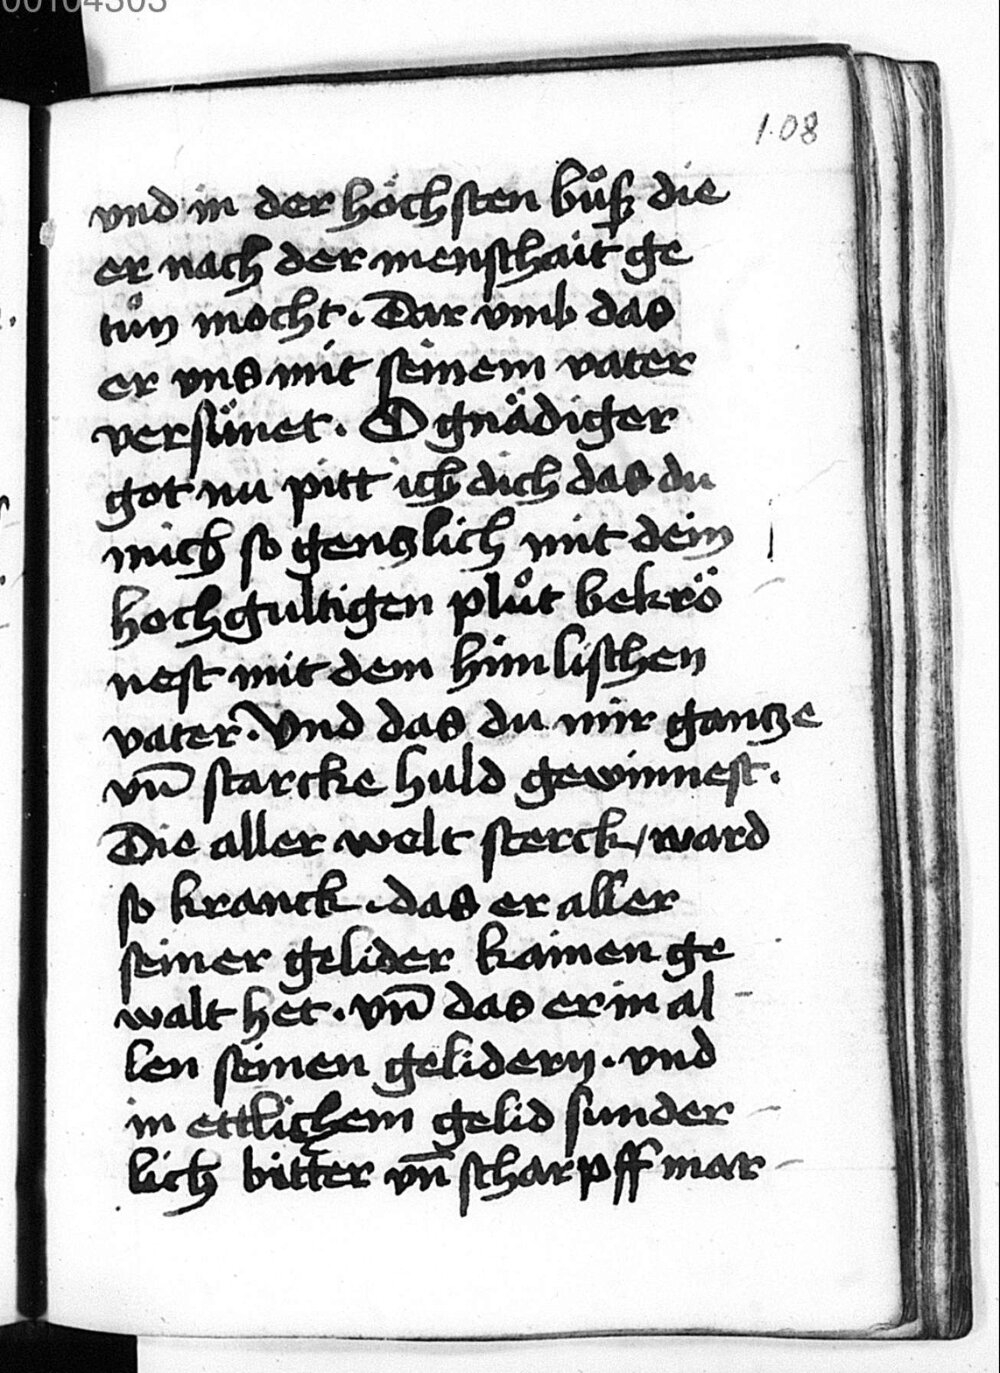 00104303
108
vnd in der höchsten buͦsß die
er nach der menschait ge
tuͦn mocht. Dar vmb das
er vns mit seinem vater
versünet. O gnädiger
got nu pitt ich dich das du
mich so genslich mit dein
hochgultigen pluͦt bekrö
nest mit dem himlischen
vater. Vnd das du mir gantze
vn̄ starcke huld gewinnest.
Die aller welt sterck / ward
so kranck. das er aller
seiner gelider kainen ge
walt het. vn̄ das er in al
len seinen gelidern. vnd
in ettlichem gelid sunder
lich bitter vn̄ scharpff mar